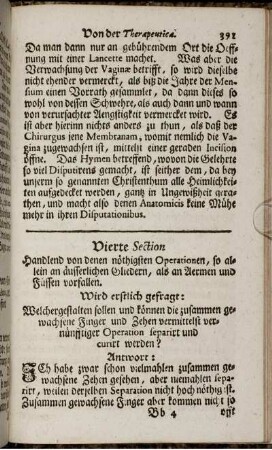 Von der Therapeutica. 391
Da man dann nur an gebührendem Ort die Oeff-
nung mit einer Lancette machet. Was aber die
Verwachsung der Vaginæ betrifft, so wird dieselbe
nicht ehender vermerckt, als biß die Jahre der Men-
sium einen Vorrath gesammlet, da dann dieses so
wohl von dessen Schwehre, als auch dann und wann
von verursachter Aengstigkeit vermerckt wird. Es
ist aber hierinn nichts anders zu thun, als daß der
Chirurgus jene Membranam, womit nemlich die Va-
gina zugewachsen ist, mittelst einer geraden Incision
öffne. Das Hymen betreffend, wovon die Gelehrte
so viel Disputirens gemacht, ist seither dem, da bey
unserm so genannten Christenthum alle Heimlichkei-
ten aufgedecket werden, gantz in Ungewißheit gera-
then, und macht also denen Anatomicis keine Mühe
mehr in ihren Disputationibus.
Vierte Section
Handlend von denen nöthigsten Operationen, so al-
lein an äusserlichen Gliedern, als an Aermen und
Füssen vorfallen.
Wird erstlich gefragt:
Welchergestalten sollen und können die zusammen ge-
wachsene Finger und Zehen vermittelst ver-
nünfftiger Operation separirt und
curirt werden?
Antwort:
ICh habe zwar schon vielmahlen zusammen ge-
wachsene Zehen gesehen, aber niemahlen sepa-
rirt, weilen derselben Separation nicht hoch nöthig ist.
Zusammen gewachsene Finger aber kommen nicht so
Bb 4 offt